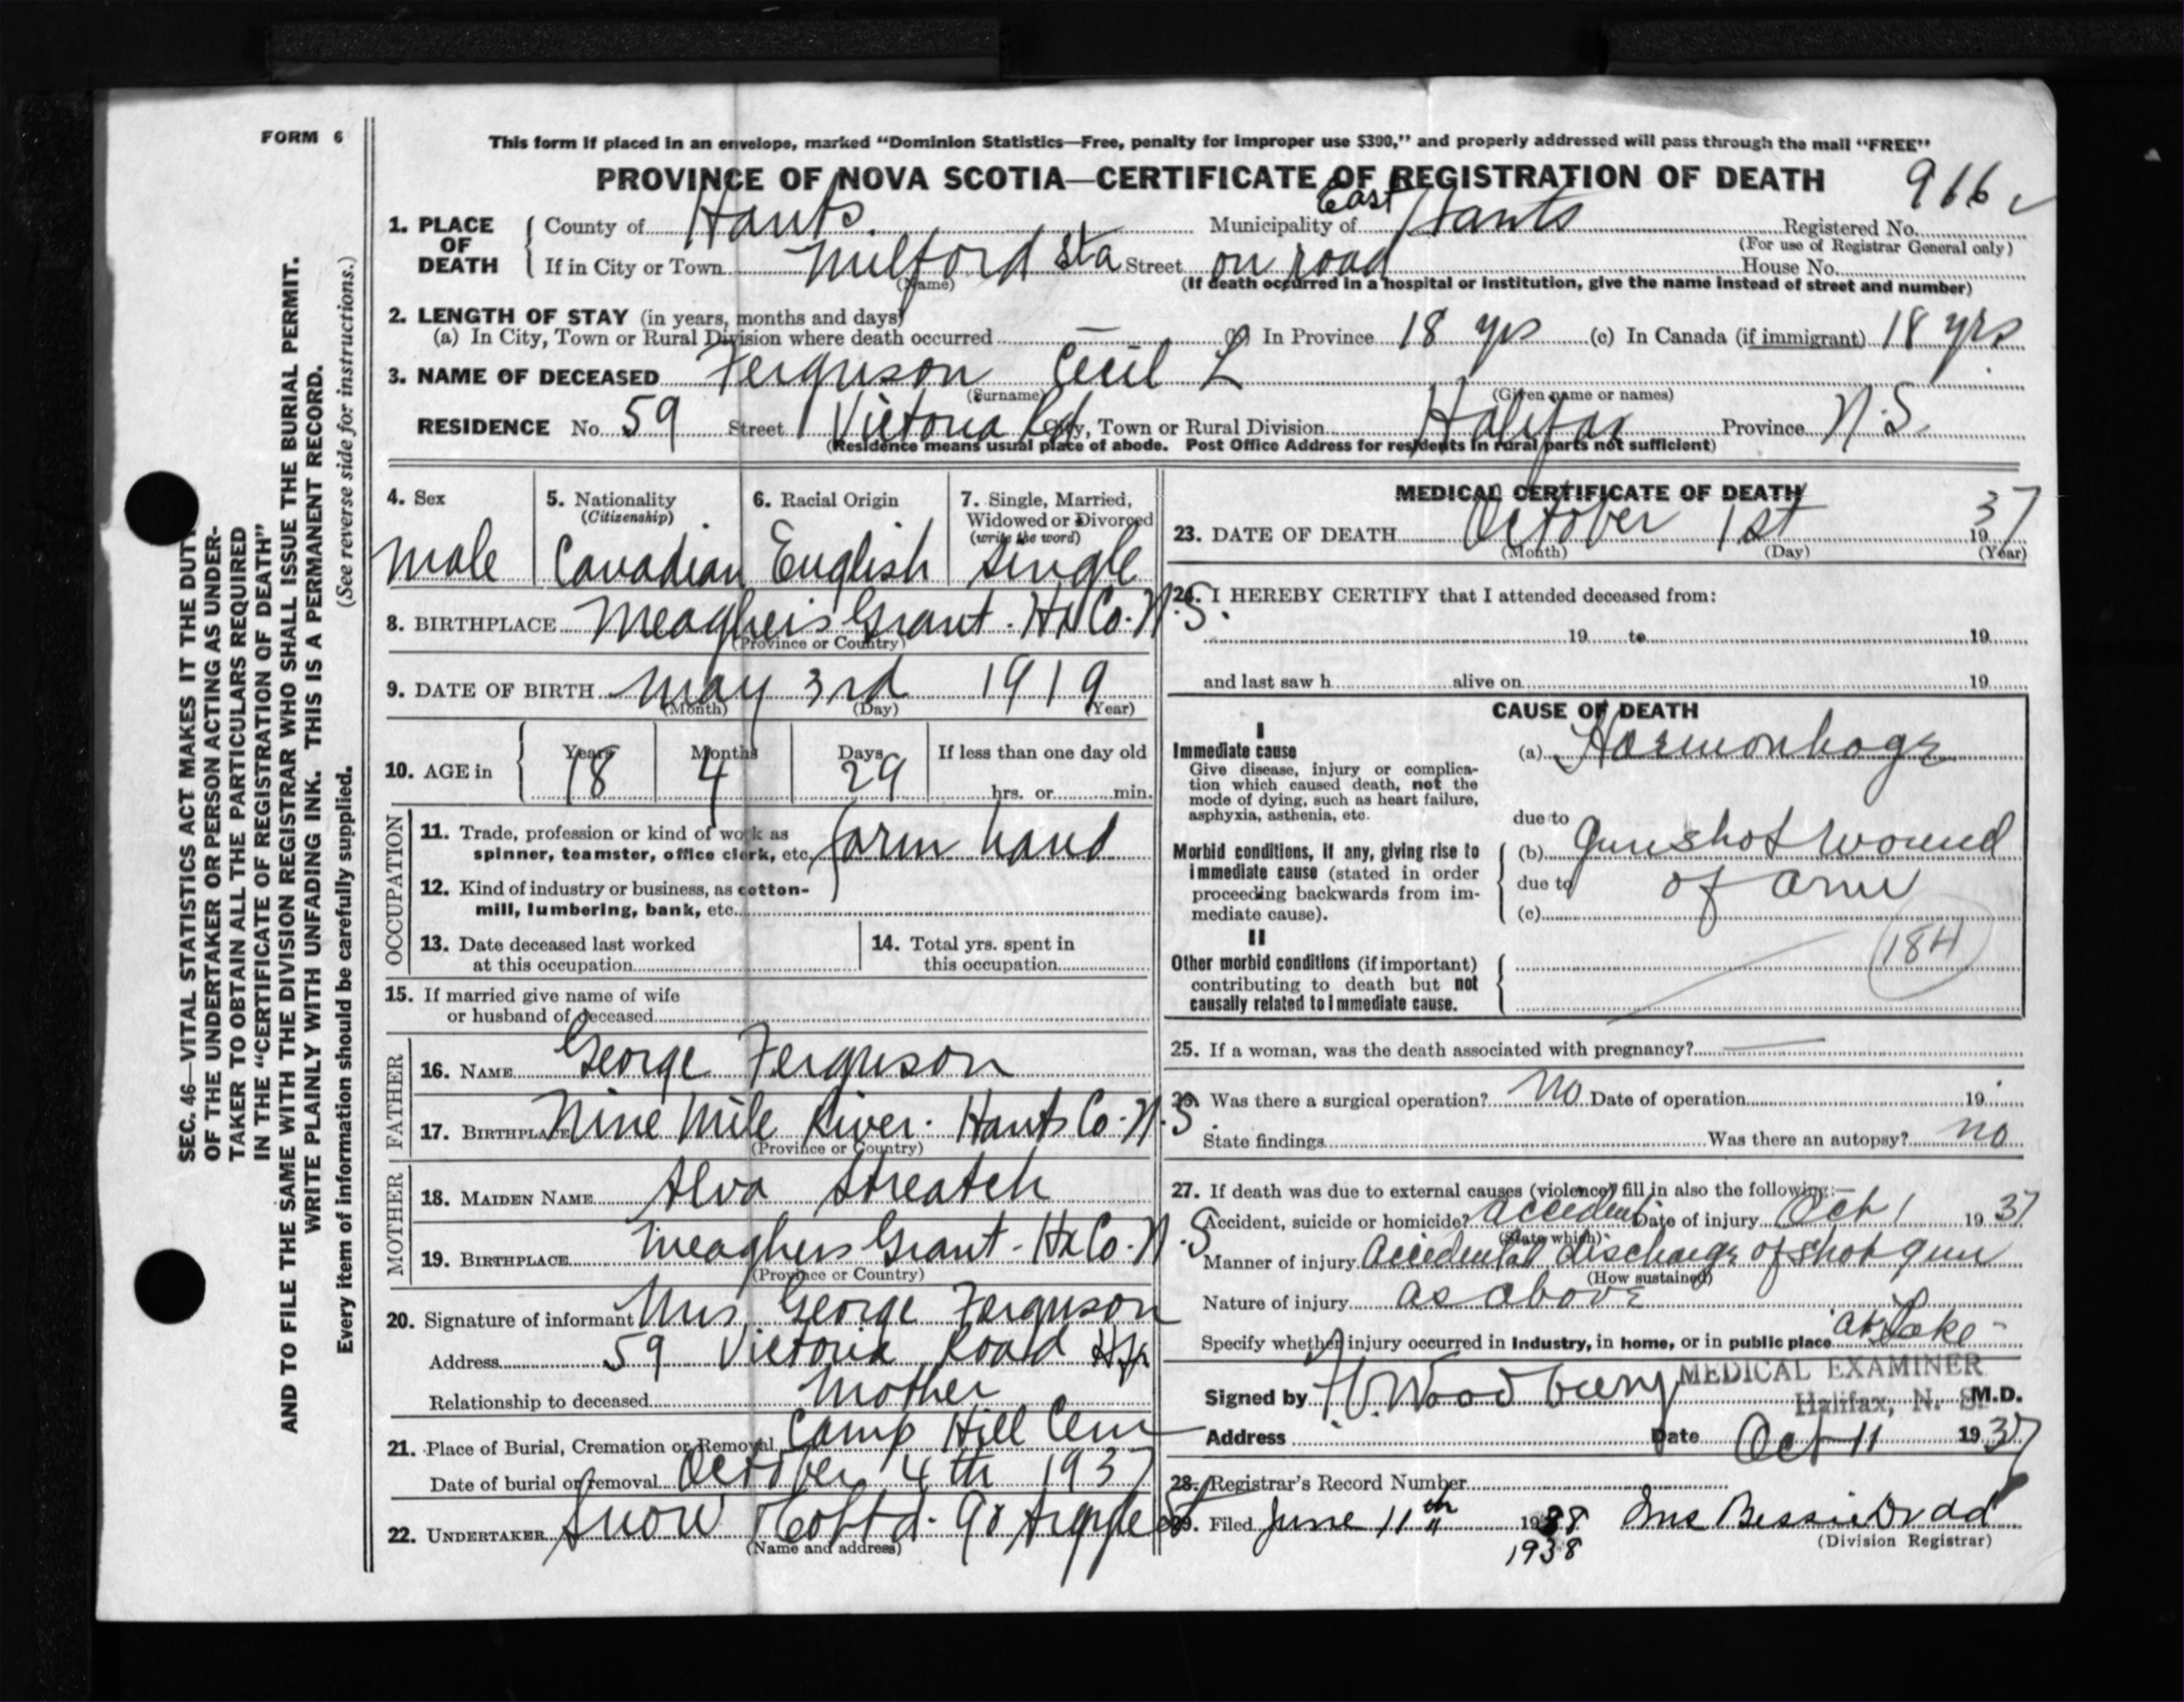 FORM 6
This form if placed in an envelope, marked "Dominion Statistics—Free, penalty for improper use $300," and properly addressed will pass through the mail "FREE"
PROVINCE OF NOVA SCOTIA—CERTIFICATE OF REGISTRATION OF DEATH 916
1. PLACE OF DEATH County of Hants. Municipality of East Hants Registered No.
(For use of Registrar General only)
If in City or Town Milford Sta Street on road House No.
(Name) (If death occurred in a hospital or institution, give the name instead of street and number)
2. LENGTH OF STAY (in years, months and days)
(a) In City, Town or Rural Division where death occurred — (b) In Province 18 yrs (c) In Canada (if immigrant) 18 yrs
3. NAME OF DECEASED Ferguson Cecil L
(Surname) (Given name or names)
RESIDENCE No. 59 Street Victoria Rd City, Town or Rural Division Halifax Province N.S.
(Residence means usual place of abode. Post Office Address for residents in rural parts not sufficient)
4. Sex
male
5. Nationality
(Citizenship)
Canadian
6. Racial Origin
English
7. Single, Married,
Widowed or Divorced
(write the word)
single
8. BIRTHPLACE Meaghers Grant. Hx Co. N.S.
(Province or Country)
9. DATE OF BIRTH May 3rd 1919
(Month) (Day) (Year)
10. AGE in Years 18 Months 4 Days 29 If less than one day old
hrs. or min.
OCCUPATION
11. Trade, profession or kind of work as
spinner, teamster, office clerk, etc. farm hand
12. Kind of industry or business, as cotton-
mill, lumbering, bank, etc.
13. Date deceased last worked
at this occupation
14. Total yrs. spent in
this occupation
15. If married give name of wife
or husband of deceased
FATHER
16. NAME George Ferguson
17. BIRTHPLACE Nine Mile River. Hants Co. N.S.
(Province or Country)
MOTHER
18. MAIDEN NAME Alva Streatch
19. BIRTHPLACE Meaghers Grant - Hx Co. N.S
(Province or Country)
20. Signature of informant Mrs George Ferguson
Address 59 Victoria Road Hfx
Relationship to deceased Mother
21. Place of Burial, Cremation or Removal Camp Hill Cem
Date of burial or removal October 4th 1937
22. UNDERTAKER Snow & Co Ltd. 90 Argyle St
(Name and address)
MEDICAL CERTIFICATE OF DEATH
23. DATE OF DEATH October 1st 1937
(Month) (Day) (Year)
24. I HEREBY CERTIFY that I attended deceased from:
19 to 19
and last saw h alive on 19
CAUSE OF DEATH
I
Immediate cause
Give disease, injury or complica-
tion which caused death, not the
mode of dying, such as heart failure,
asphyxia, asthenia, etc.
(a) Haemorrhage
due to
Morbid conditions, if any, giving rise to
immediate cause (stated in order
proceeding backwards from im-
mediate cause).
(b) Gunshot wound
due to of arm
(c)
II
Other morbid conditions (if important)
contributing to death but not
causally related to immediate cause.
184
25. If a woman, was the death associated with pregnancy? —
26. Was there a surgical operation? No Date of operation 19
State findings Was there an autopsy? no
27. If death was due to external causes (violence) fill in also the following:—
Accident, suicide or homicide? accident Date of injury Oct 1 1937
(State which)
Manner of injury accidental discharge of shot gun
(How sustained)
Nature of injury as above
Specify whether injury occurred in industry, in home, or in public place at Lake -
Signed by Woodbury MEDICAL EXAMINER
Halifax, N. S. M.D.
Address Date Oct 11 1937
28. Registrar's Record Number
29. Filed June 11th 1938 Mrs Bessie Dodd
1938 (Division Registrar)
SEC. 46—VITAL STATISTICS ACT MAKES IT THE DUTY
OF THE UNDERTAKER OR PERSON ACTING AS UNDER-
TAKER TO OBTAIN ALL THE PARTICULARS REQUIRED
IN THE "CERTIFICATE OF REGISTRATION OF DEATH"
AND TO FILE THE SAME WITH THE DIVISION REGISTRAR WHO SHALL ISSUE THE BURIAL PERMIT.
WRITE PLAINLY WITH UNFADING INK. THIS IS A PERMANENT RECORD.
Every item of information should be carefully supplied. (See reverse side for instructions.)